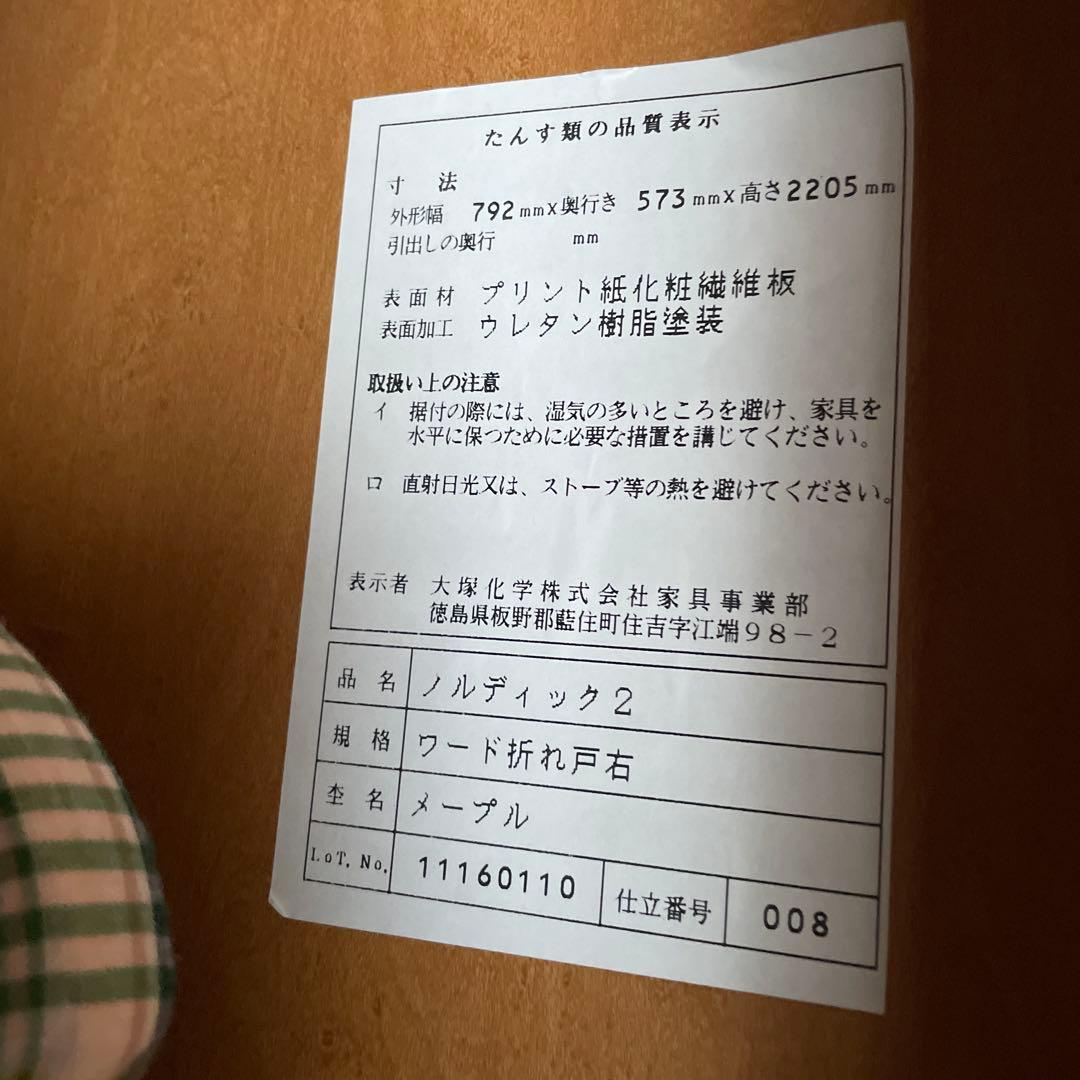 たんす類の品質表示
寸 法
外形幅 792mm×奥行き 573mm×高さ2205mm
引出しの奥行 mm
表面材 プリント紙化粧繊維板
表面加工 ウレタン樹脂塗装
取扱い上の注意
イ 据付の際には、湿気の多いところを避け、家具を
水平に保つために必要な措置を講じてください。
ロ 直射日光又は、ストーブ等の熱を避けてください。
表示者 大塚化学株式会社家具事業部
徳島県板野郡藍住町住吉字江端98-2
品名 ノルディック2
規格 ワード折れ戸右
杢名 メープル
LoT.No. 11160110 仕立番号 008